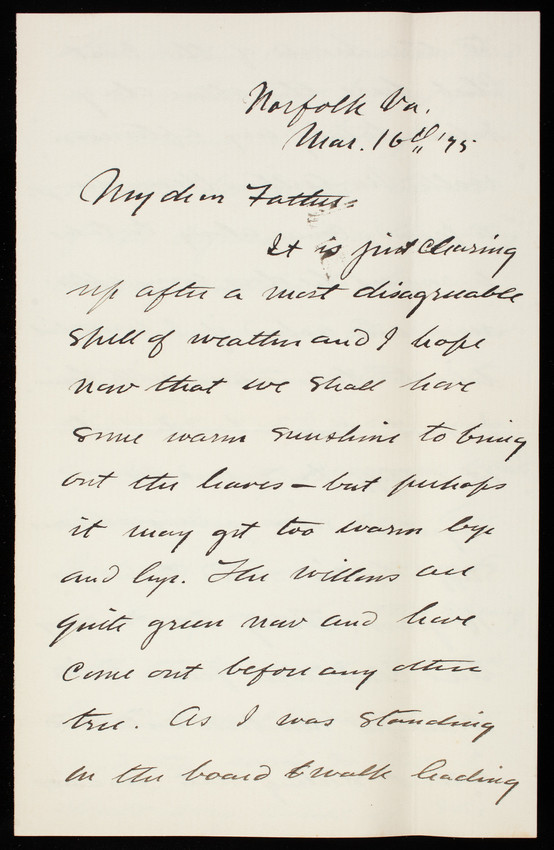 Norfolk Va.
Mar. 16th '75
My dear Father:
It is just clearing
up after a most disagreeable
spell of weather and I hope
now that we shall have
some warm sunshine to bring
out the leaves - but perhaps
it may get too warm bye
and bye. The willows are
quite green now and have
come out before any other
tree. As I was standing
on the board walk leading